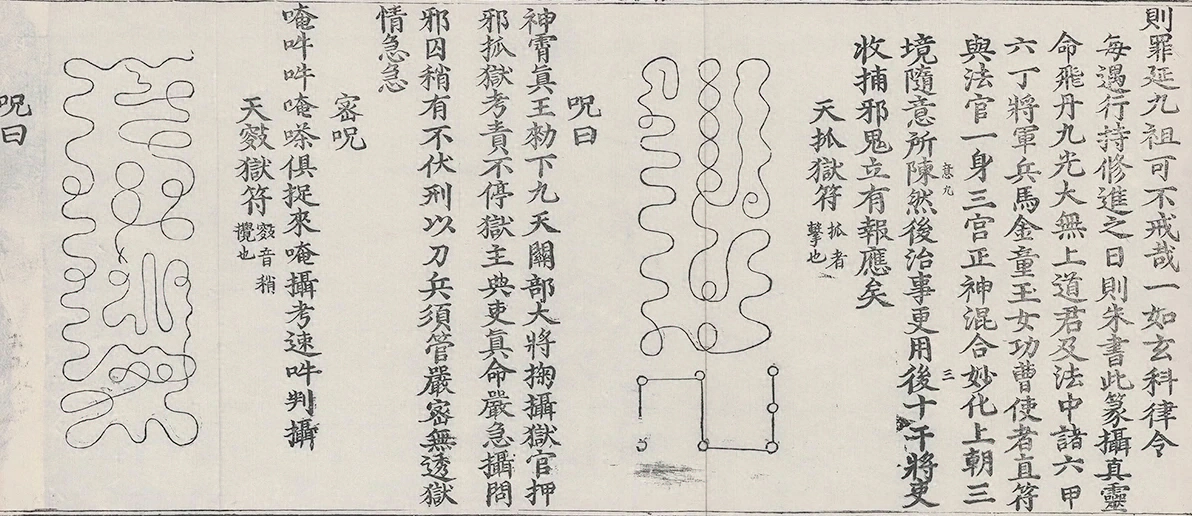 則罪延九祖可不戒哉一如玄科律令
每遇行持修進之日則朱書此篆攝真靈
命飛丹九光大無上道君及法中諸六甲
六丁將軍兵馬金童王女功曹使者直符
與法官一身三宮正神混合妙化上朝三
境隨意所陳然後治事更用後十干將吏
意九
三
收捕邪鬼立有報應矣
天抓獄符
抓者
擊也
呪曰
神霄真王勑下九天關部大將掬攝獄官押
邪抓獄考責不停獄主典吏真命嚴急攝問
邪囚稍有不伏刑以刀兵須管嚴密無透獄
情急急
密呪
唵吽吽唵嗏俱捉來唵攝考速吽判攝
天㲉獄符
㲉音稍
攪也
呪曰